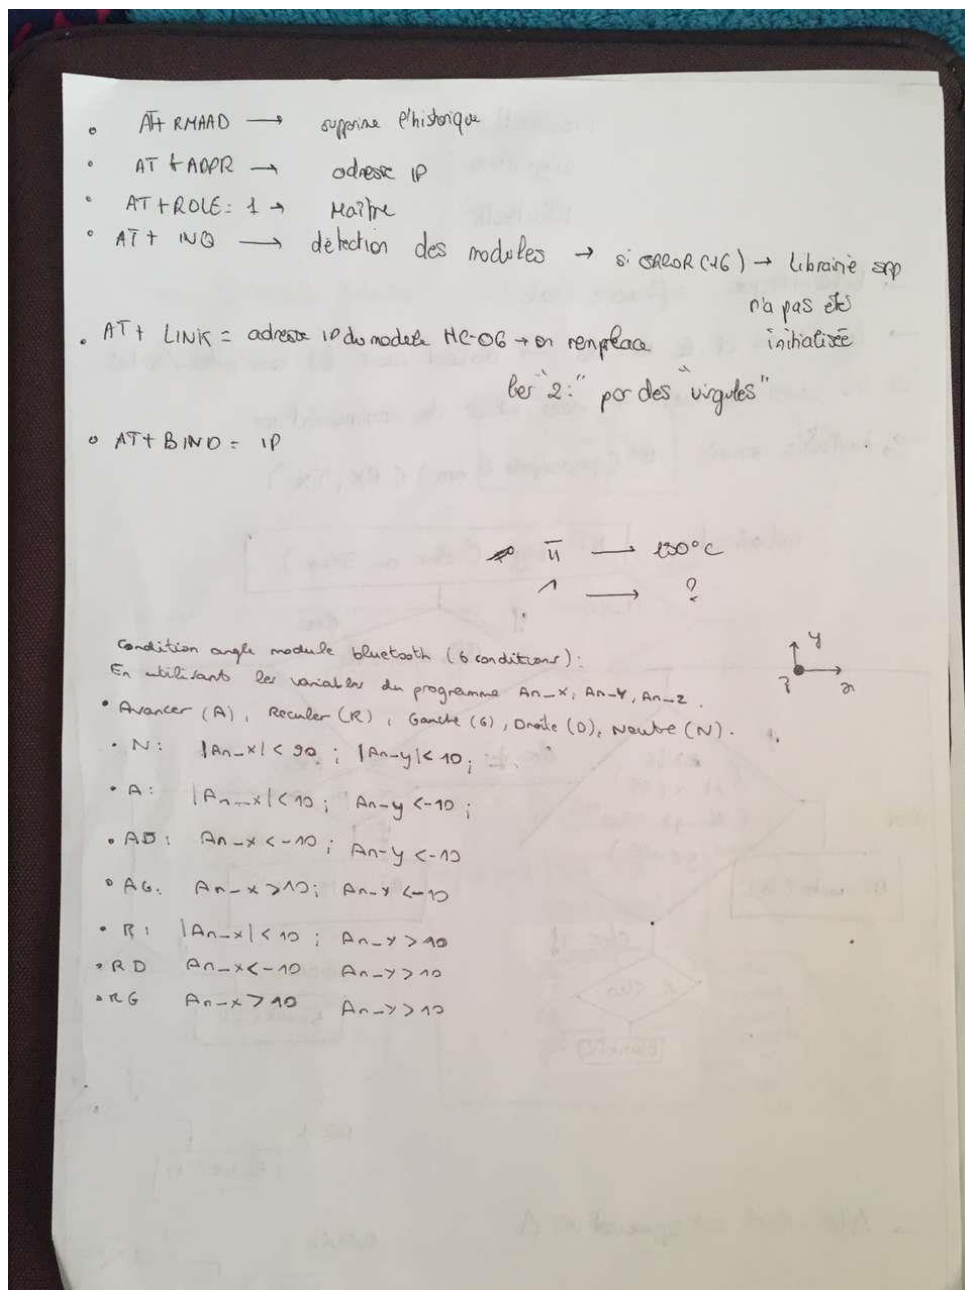 • AT+ RMAAD → supprime l'historique
• AT + ADDR → adresse IP
• AT+ROLE= 1 → Maître
• AT+ INQ → détection des modules → si ERROR(16) → librairie spp
n'a pas été
initialisée
• AT+ LINK = adresse IP du module HC-06 → on remplace
les "2:" par des "virgules"
• AT+BIND = IP
π → 180°C
1 → ?
Condition angle module bluetooth (6 conditions):
y
x
En utilisants les variables du programme An_x, An_y, An_z.
• Avancer (A), Reculer (R), Gauche (G), Droite (D), Neutre (N).
• N: |An_x| < 90; |An_y| < 10;
• A: |An_x| < 10; An_y < -10;
• AD: An_x < -10; An_y < -10
• AG: An_x > 10; An_y < -10
• R: |An_x| < 10; An_y > 10
• RD An_x < -10 An_y > 10
• RG An_x > 10 An_y > 10